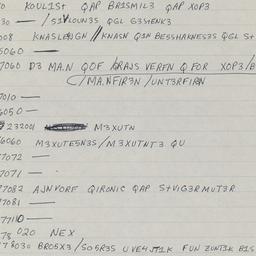 0 KOUL1St QAP BR1SMIL3 QAP XOP3
30 — /S1VLOUN3S QGL G3SHENK3
008 KNASLENGN // KNASN Q1N BESSHARKNES3S QGL St
5060 —
7060 D3 MA.N QOF VERFN Q FOR XOP3/B
C/MA.NFIR3N /UNT3RFIRN
7010 —
6050 —
7232001 M3XUTN
6060 M3XUTE5N3S/M3XUTNT3 QU
77072 —
7071 —
77082 AJNVORF QIRONIC QAP StVIG3RMUT3R
77081 —
77110 —
78 020 NEX
78030 BRO5X3/SO5R3S UVE4JT1K FUN ZUNT1K B1S